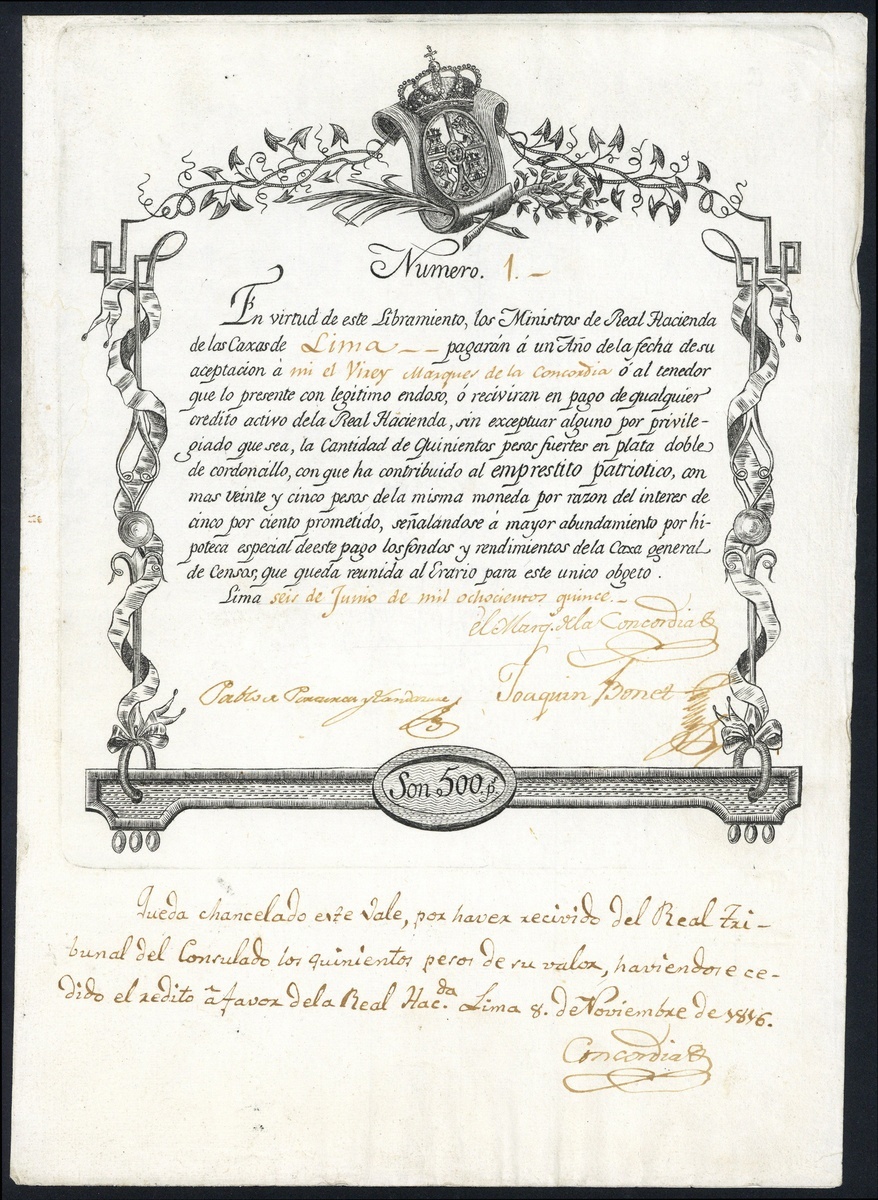 Numero. 1. —
En virtud de este Libramiento, los Ministros de Real Hacienda
de las Caxas de Lima — — pagarán á un Año de la fecha de su
aceptacion à mi el Virey Marques de la Concordia ó al tenedor
que lo presente con legitimo endoso, ó reciviran en pago de qualquier
credito activo dela Real Hacienda, sin exceptuar alguno por privile-
giado que sea, la Cantidad de Quinientos pesos fuertes en plata doble
de cordoncillo, con que ha contribuido al emprestito patriotico, con
mas veinte y cinco pesos de la misma moneda por razon del interes de
cinco por ciento prometido, señalandose á mayor abundamiento por hi-
poteca especial de este pago los fondos y rendimientos de la Caxa general
de Censos, que queda reunida al Erario para este unico obgeto.
Lima seis de Junio de mil ochocientos quince. —
el Marq. dela Concordia
Pablo Joaquin Bonet
Son 500 p.
Queda chancelado este Vale, por haver recivido del Real Tri-
bunal del Consulado los quinientos pesos de su valor, haviendose ce-
dido el redito â favor dela Real Hac.da Lima 8. de Noviembre de 1816.
Concordia